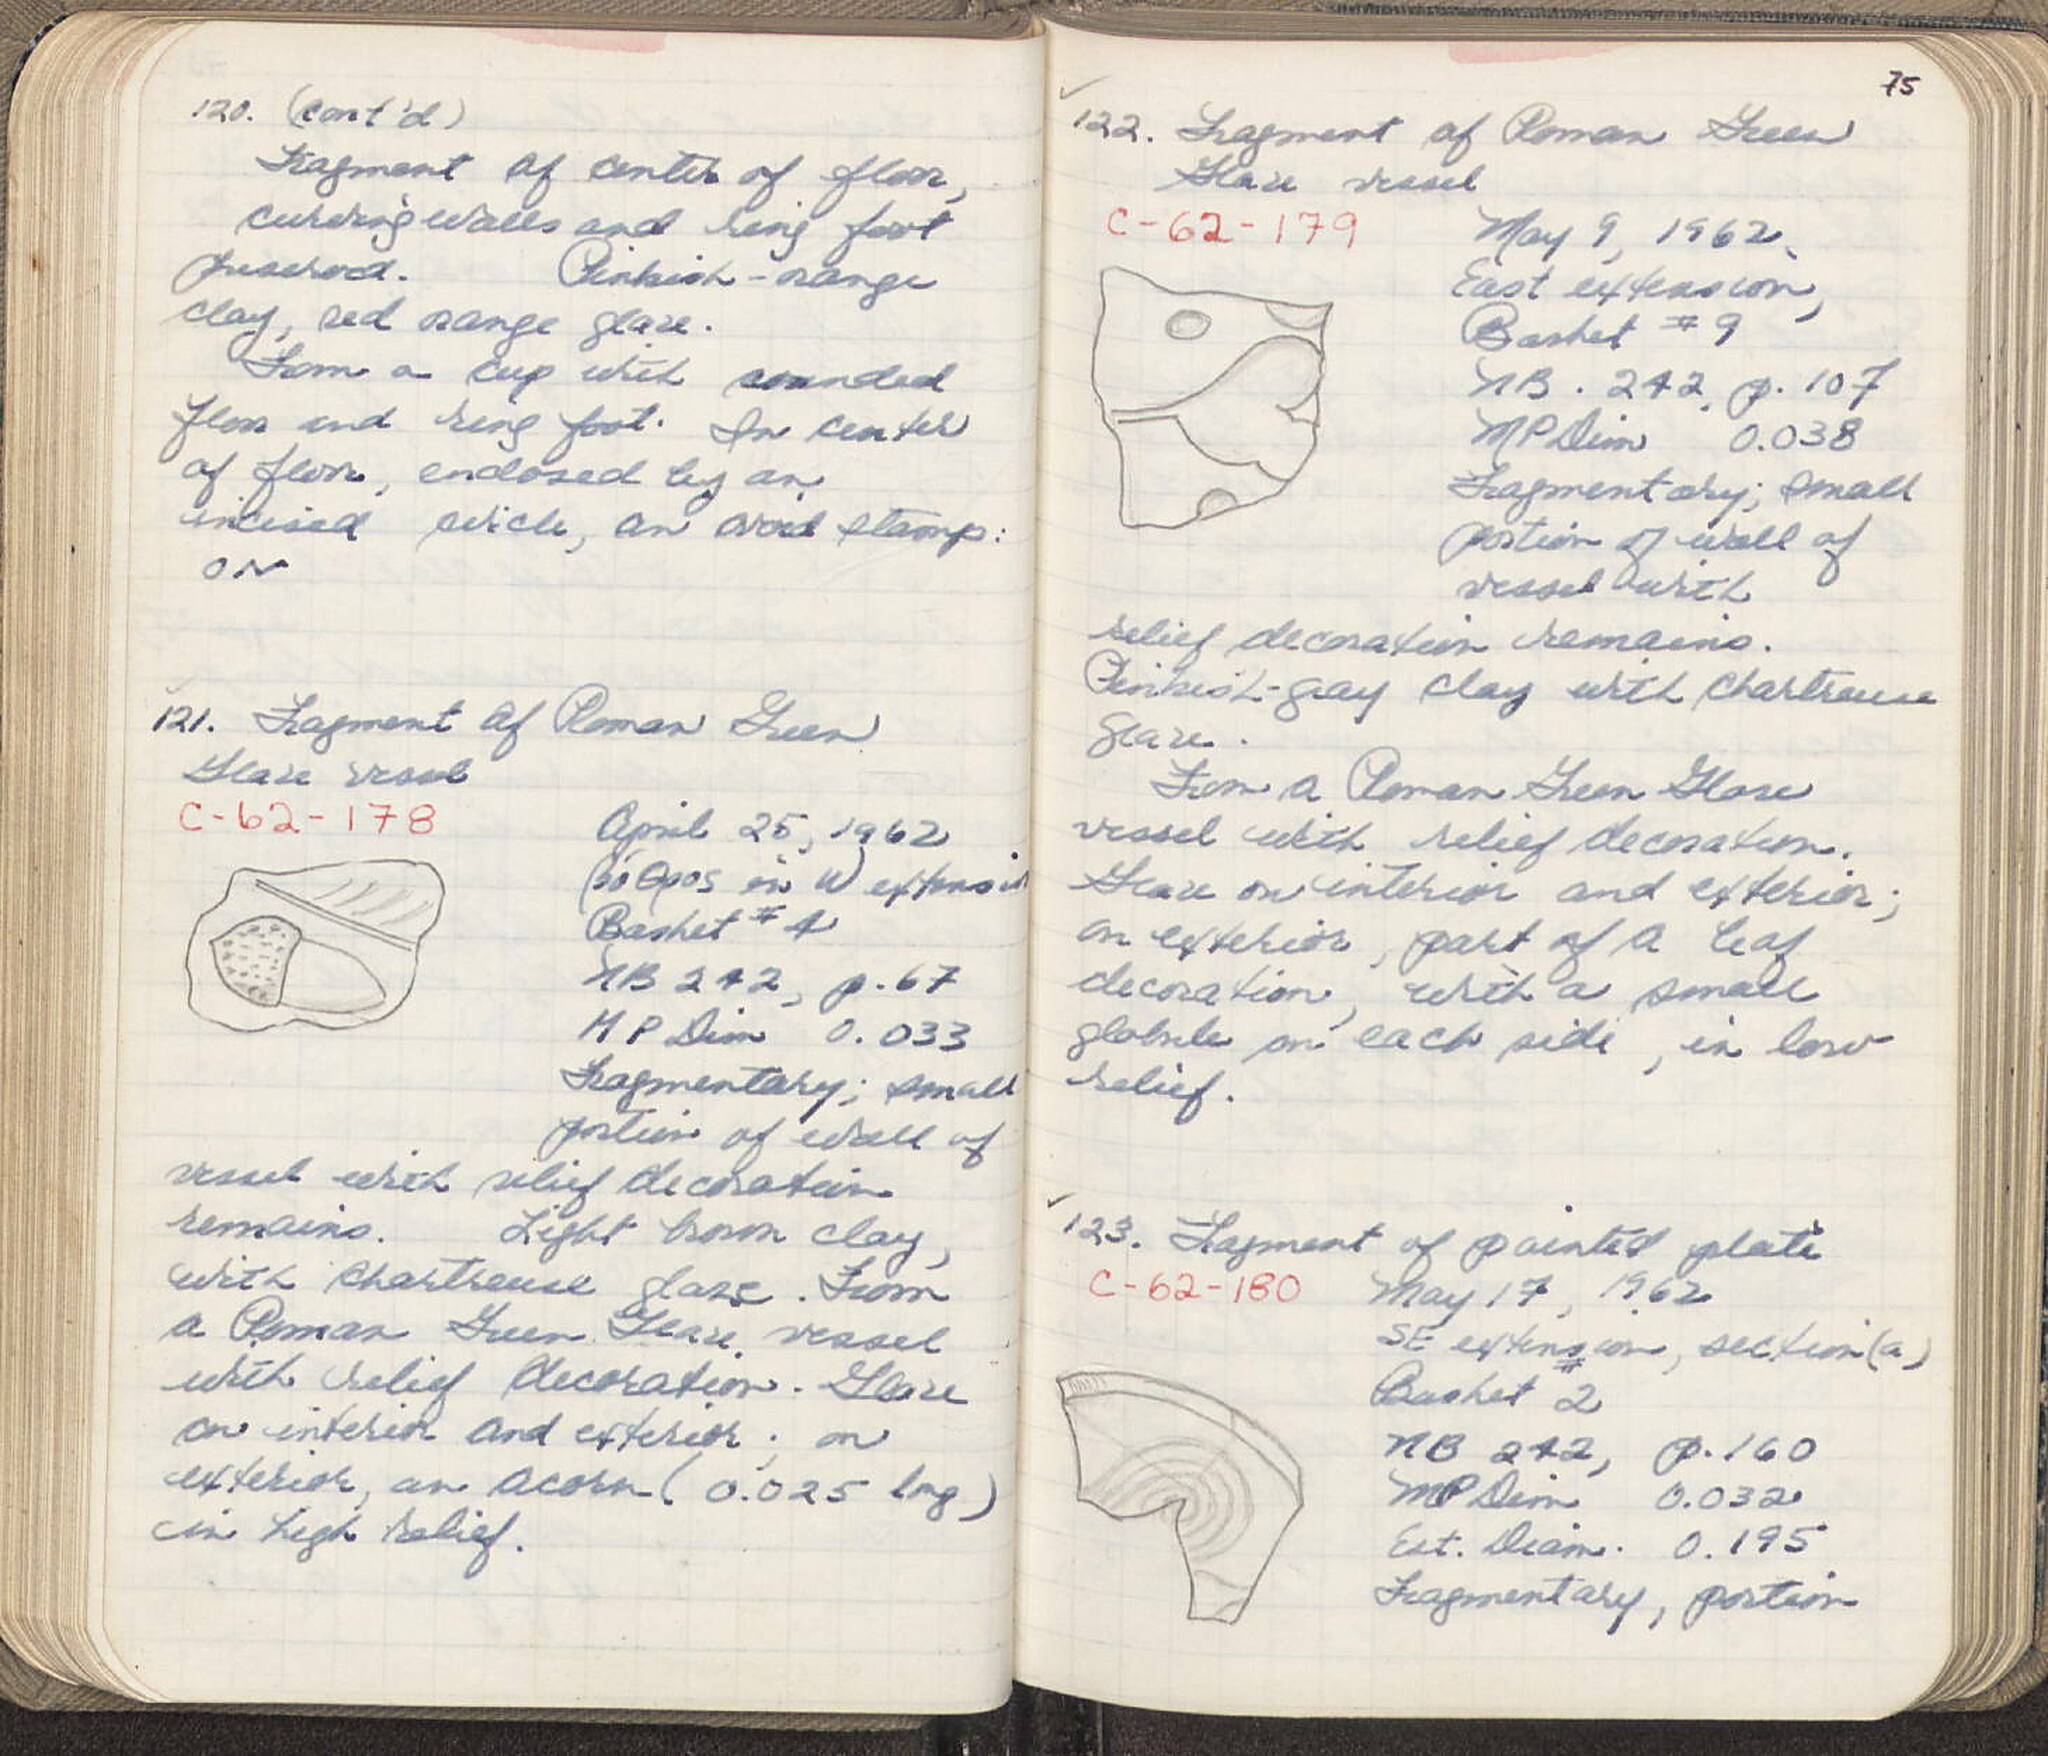 120. (cont'd)
Fragment of center of floor,
curving walls and ring foot
preserved. Pinkish-orange
clay, red orange glaze.
From a cup with rounded
floor and ring foot. In center
of floor, enclosed by an
incised circle, an ovoid stamp:
121. Fragment of Roman Green
Glaze vessel
C-62-178
April 25, 1962
βόθρος in W extension
Basket #4
NB 242, p. 67
M P Dim 0.033
Fragmentary; small
portion of wall of
vessel with relief decoration
remains. Light brown clay,
with chartreuse glaze. From
a Roman Green Glaze vessel
with relief decoration. Glaze
on interior and exterior; on
exterior, an acorn (0.025 long)
in high relief.
75
122. Fragment of Roman Green
Glaze vessel
C-62-179
May 9, 1962
East extension,
Basket #9
NB. 242, p. 107
MPDim 0.038
Fragmentary; small
portion of wall of
vessel with
relief decoration remains.
Pinkish-gray clay with chartreuse
glaze.
From a Roman Green Glaze
vessel with relief decoration.
Glaze on interior and exterior;
on exterior, part of a leaf
decoration, with a small
globule on each side, in low
relief.
123. Fragment of painted plate
C-62-180
May 17, 1962
SE extension, section (a)
Basket #2
NB 242, p. 160
MPDim 0.032
Est. Diam. 0.195
Fragmentary, portion